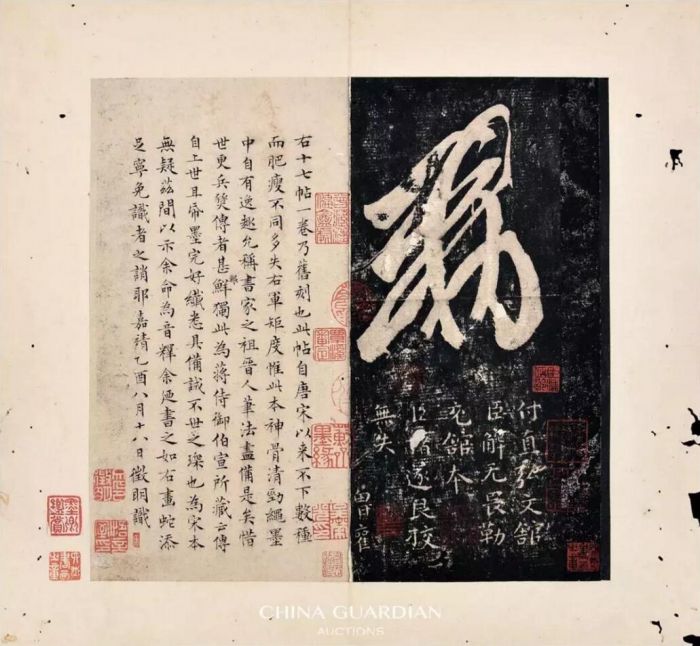 敕
付直弘文館
臣解无畏勒
充館本
臣褚遂良校
無失
曽雚
右十七帖一卷乃舊刻也此帖自唐宋以来不下數種
而肥瘦不同多失右軍矩度惟此本神骨清勁繩墨
中自有逸趣允稱書家之祖晉人筆法盡備是矣惜
世更兵燹傳者甚鮮獨此為蔣侍御伯宣所藏云傳
自上世且帋墨完好纖悉具備誠不世之璨也為宋本
無疑茲間以示余命為音釋余廼書之如右畫蛇添
足寧免識者之誚耶嘉靖乙酉八月十八日徵明識
CHINA GUARDIAN
AUCTIONS